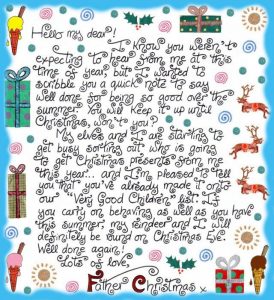 Hello my dear!
I know you weren't
expecting to hear from me at this
time of year, but I wanted to
scribble you a quick note to say
Well done for being so good over the
summer. You will keep it up until
Christmas, won't you?
My elves and I are starting to
get busy sorting out who is going
to get Christmas presents from me
this year... and I'm pleased to tell
you that you've already made it onto
our "Very Good Children" list. If
you carry on behaving as well as you have
this summer, my reindeer and I will
definitely be round on Christmas Eve.
Well done again!
Lots of love,
Father Christmas x